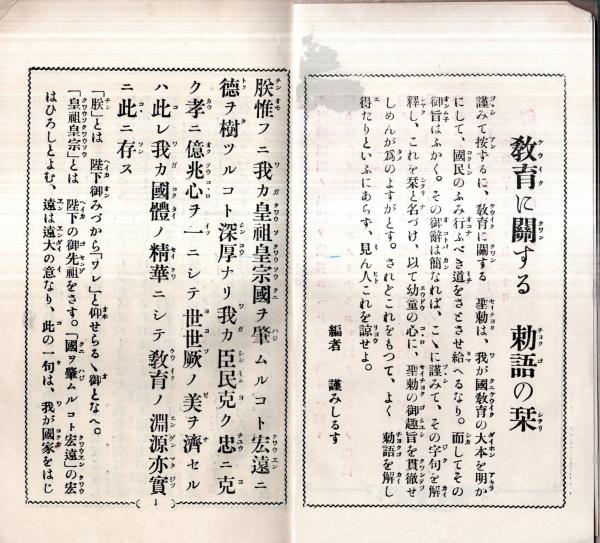 教育に關する　勅語の栞
謹みて按ずるに、教育に關する　聖勅は、我が國教育の大本を明か
にして、國民のふみ行ふべき道をさとさせ給へるなり。而してその
御旨はふかく。その御辭は簡なれば、こゝに謹みて、その字句を解
釋し、これを栞と名づけ、以て幼童の心に、聖勅の御趣旨を貫徹せ
しめんが爲のよすがとす。されどこれをもつて、よく　勅語を解し
得たりといふにあらず、見ん人これを諒せよ。
編者　謹みしるす
朕惟フニ我カ皇祖皇宗國ヲ肇ムルコト宏遠ニ
德ヲ樹ツルコト深厚ナリ我カ臣民克ク忠ニ克
ク孝ニ億兆心ヲ一ニシテ世世厥ノ美ヲ濟セル
ハ此レ我カ國體ノ精華ニシテ教育ノ淵源亦實
ニ此ニ存ス
「朕」とは　陛下御みづから「ワレ」と仰せらるゝ御となへ。
「皇祖皇宗」とは　陛下の御先祖をさす。「國ヲ肇ムルコト宏遠」の宏
はひろしとよむ、遠は遠大の意なり、此の一句は、我が國家をはじ
1